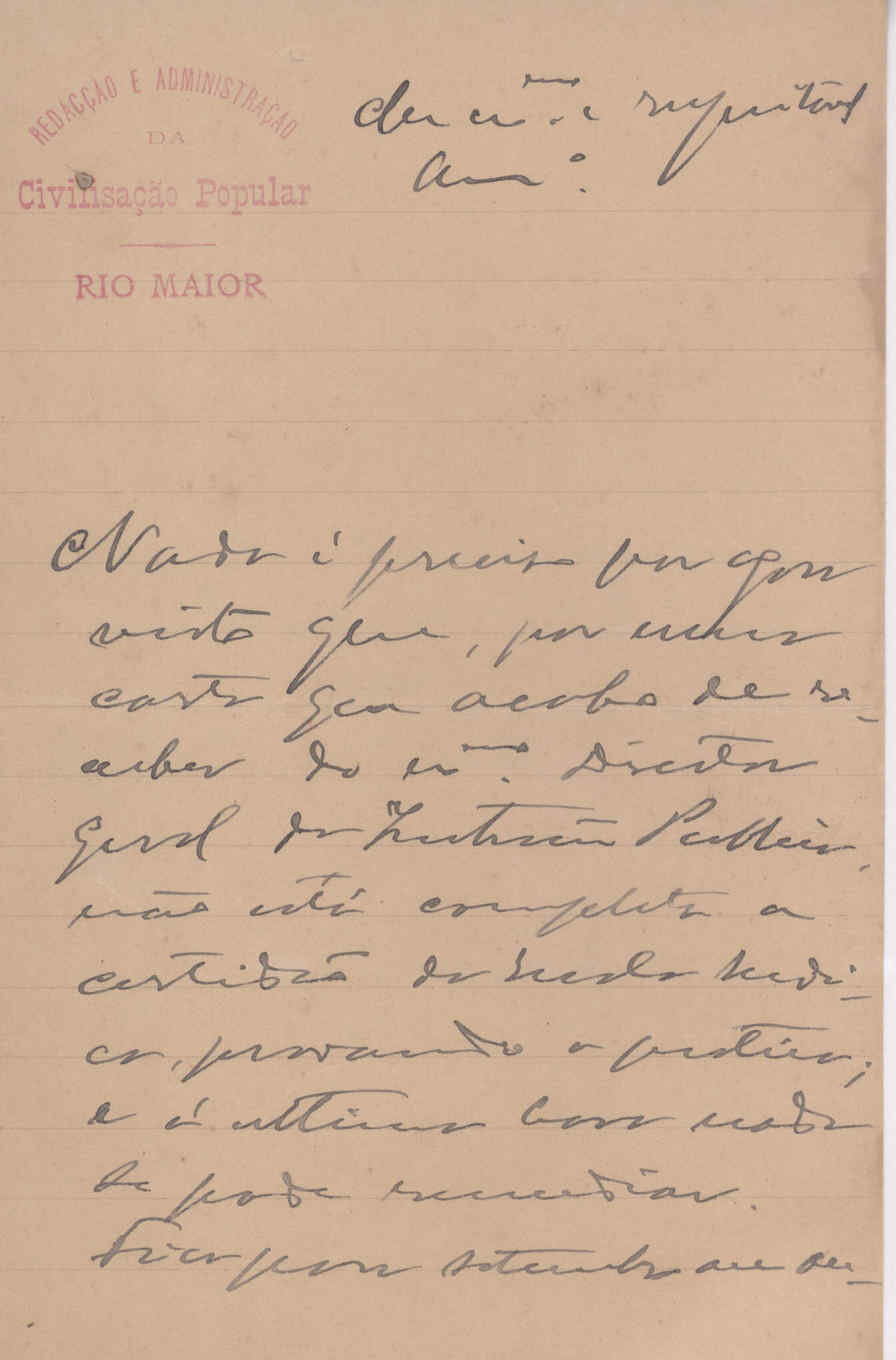 REDACÇÃO E ADMINISTRAÇÃO
DA
Civilisação Popular
RIO MAIOR
Meu ex.mo e respeitavel
Am.o
Nada é preciso por agora
visto que, por uma
carta que acabo de re-
ceber do ex.mo Director
Geral da Instrucção Publica,
não está completa a
certidão da Escola Medi-
ca, provando a pratica;
e á ultima hora nada
se pode remediar.
Fica para setembro ou ou-